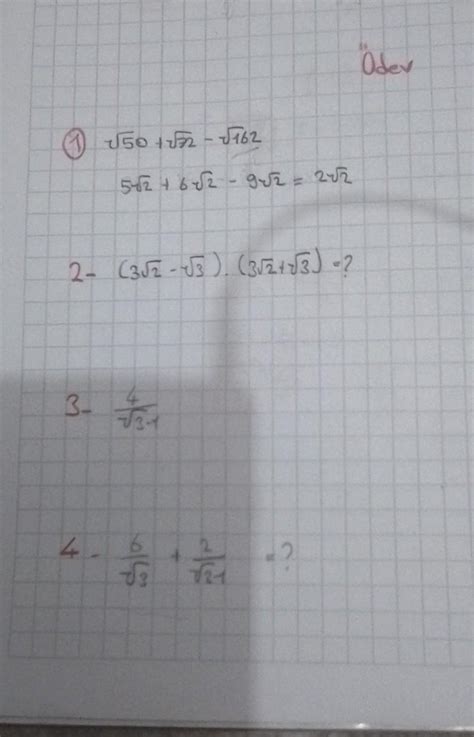 Ödev
1 √50 + √72 - √162
5√2 + 6√2 - 9√2 = 2√2
2- (3√2 - √3) . (3√2 + √3) = ?
3- 4/√3-1
4- 6/√3 + 2/√2-1 = ?